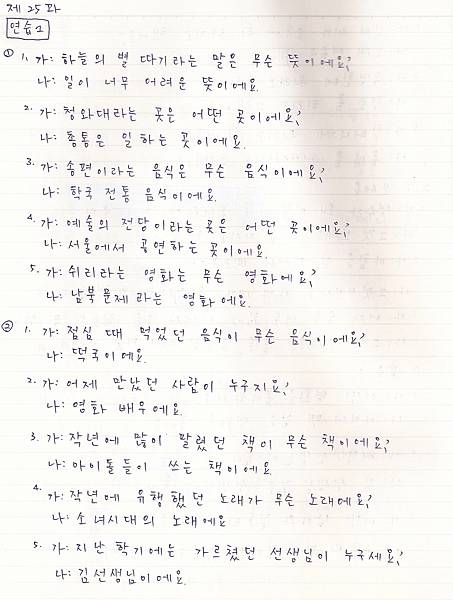 제 25 과
연습 1
① 1. 가: 하늘의 별 따기라는 말은 무슨 뜻이에요?
나: 일이 너무 어려운 뜻이에요.
2. 가: 청와대라는 곳은 어떤 곳이에요?
나: 총통은 일 하는 곳이에요.
3. 가: 송편이라는 음식은 무슨 음식이에요?
나: 한국 전통 음식이에요.
4. 가: 예술의 전당이라는 곳은 어떤 곳이에요?
나: 서울에서 공연하는 곳이에요.
5. 가: 쉬리라는 영화는 무슨 영화예요?
나: 남북문제 라는 영화예요.
② 1. 가: 점심 때 먹었던 음식이 무슨 음식이에요?
나: 떡국이에요.
2. 가: 어제 만났던 사람이 누구지요?
나: 영화 배우예요.
3. 가: 작년에 많이 팔렸던 책이 무슨 책이에요?
나: 아이돌들이 쓰는 책이에요.
4. 가: 작년에 유행했던 노래가 무슨 노래예요?
나: 소녀시대의 노래예요
5. 가: 지난 학기에는 가르쳤던 선생님이 누구세요?
나: 김선생님이에요.